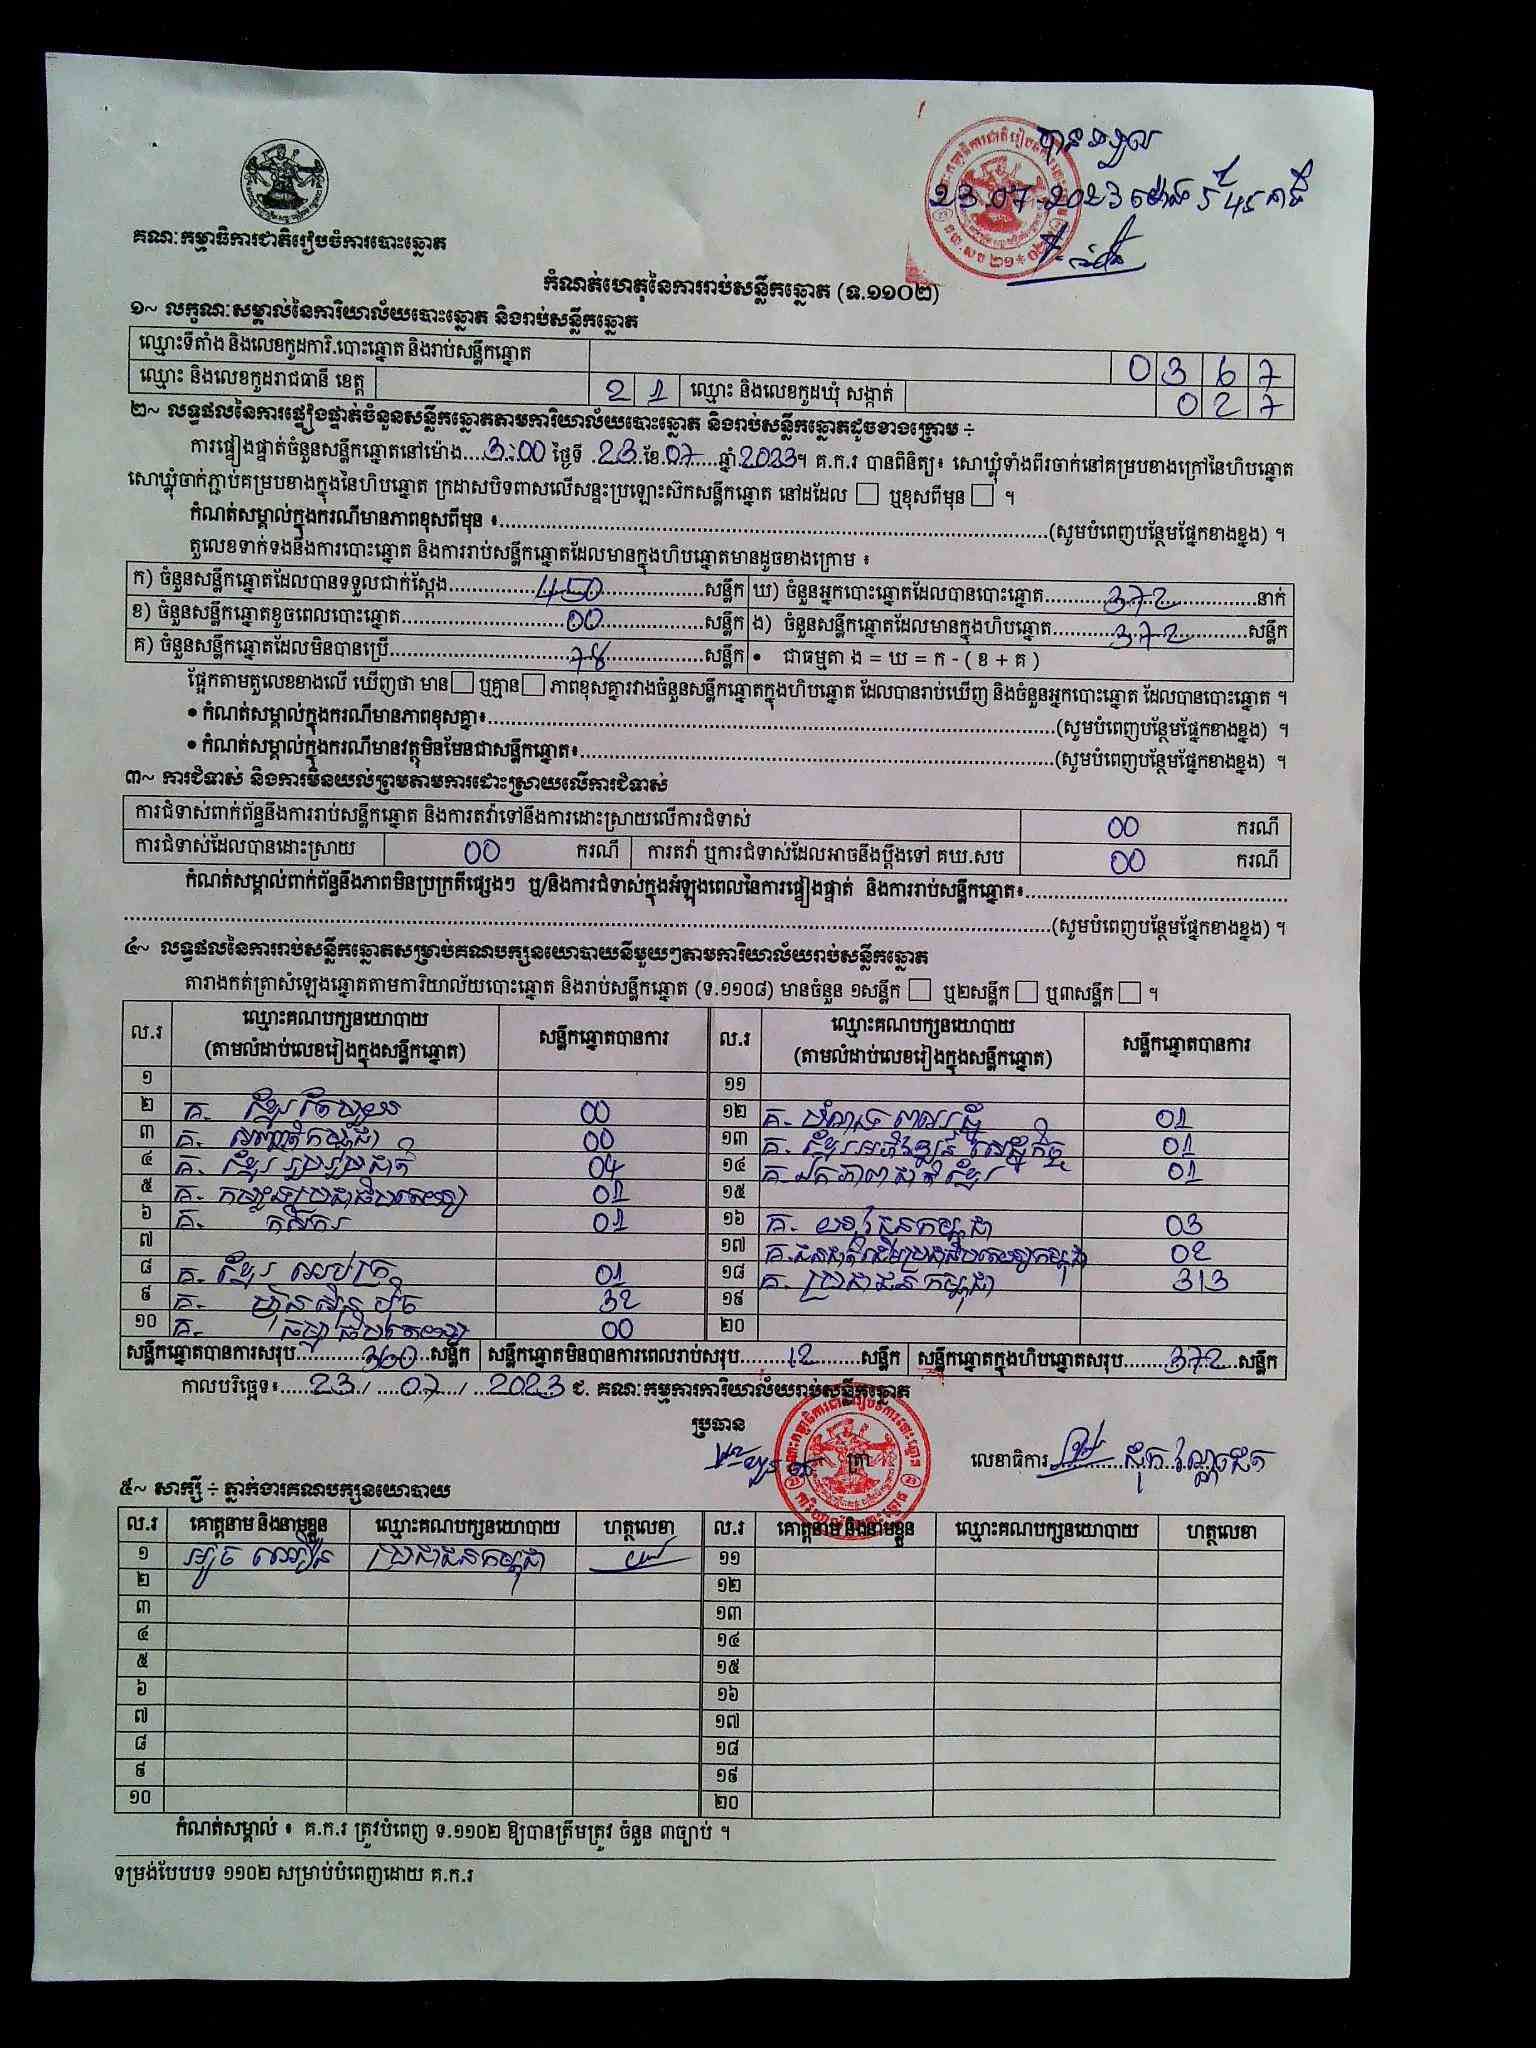 បានទទួល
23.07-2023 ម៉ោង 5 និង 45 នាទី
គណៈកម្មាធិការជាតិរៀបចំការបោះឆ្នោត
កំណត់ហេតុនៃការរាប់សន្លឹកឆ្នោត (ទ.១១០២)
១~ លក្ខណៈសម្គាល់នៃការិយាល័យបោះឆ្នោត និងរាប់សន្លឹកឆ្នោត
ឈ្មោះទីតាំង និងលេខកូដការិ.បោះឆ្នោត និងរាប់សន្លឹកឆ្នោត 0 3 6 7
ឈ្មោះ និងលេខកូដរាជធានី ខេត្ត 2 1 ឈ្មោះ និងលេខកូដឃុំ សង្កាត់ 0 2 7
២~ លទ្ធផលនៃការផ្ទៀងផ្ទាត់ចំនួនសន្លឹកឆ្នោតតាមការិយាល័យបោះឆ្នោត និងរាប់សន្លឹកឆ្នោតដូចខាងក្រោម ÷
ការផ្ទៀងផ្ទាត់ចំនួនសន្លឹកឆ្នោតនៅម៉ោង....3:00 ថ្ងៃទី .23.ខែ.07.....ឆ្នាំ.2023។ គ.ក.រ បានពិនិត្យ៖ សោឃ្លុំទាំងពីរចាក់នៅគម្របខាងក្រៅនៃហិបឆ្នោត
សោឃ្លុំចាក់ភ្ជាប់គម្របខាងក្នុងនៃហិបឆ្នោត ក្រដាសបិទពាសលើសន្ទះប្រឡោះស៊កសន្លឹកឆ្នោត នៅដដែល □ ឬខុសពីមុន □ ។
កំណត់សម្គាល់ក្នុងករណីមានភាពខុសពីមុន ៖..........(សូមបំពេញបន្ថែមផ្នែកខាងខ្នង) ។
តួលេខទាក់ទងនឹងការបោះឆ្នោត និងការរាប់សន្លឹកឆ្នោតដែលមានក្នុងហិបឆ្នោតមានដូចខាងក្រោម ៖
ក) ចំនួនសន្លឹកឆ្នោតដែលបានទទួលជាក់ស្តែង..........450..........សន្លឹក ឃ) ចំនួនអ្នកបោះឆ្នោតដែលបានបោះឆ្នោត..........372..........នាក់
ខ) ចំនួនសន្លឹកឆ្នោតខូចពេលបោះឆ្នោត..........00..........សន្លឹក ង) ចំនួនសន្លឹកឆ្នោតដែលមានក្នុងហិបឆ្នោត..........372..........សន្លឹក
គ) ចំនួនសន្លឹកឆ្នោតដែលមិនបានប្រើ..........78..........សន្លឹក • ជាធម្មតា ង = ឃ = ក - ( ខ + គ )
ផ្អែកតាមតួលេខខាងលើ ឃើញថា មាន□ ឬគ្មាន□ ភាពខុសគ្នារវាងចំនួនសន្លឹកឆ្នោតក្នុងហិបឆ្នោត ដែលបានរាប់ឃើញ និងចំនួនអ្នកបោះឆ្នោត ដែលបានបោះឆ្នោត ។
• កំណត់សម្គាល់ក្នុងករណីមានភាពខុសគ្នា៖..........(សូមបំពេញបន្ថែមផ្នែកខាងខ្នង) ។
• កំណត់សម្គាល់ក្នុងករណីមានវត្ថុមិនមែនជាសន្លឹកឆ្នោត៖..........(សូមបំពេញបន្ថែមផ្នែកខាងខ្នង) ។
៣~ ការជំទាស់ និងការមិនយល់ព្រមតាមការដោះស្រាយលើការជំទាស់
ការជំទាស់ពាក់ព័ន្ធនឹងការរាប់សន្លឹកឆ្នោត និងការតវ៉ាទៅនឹងការដោះស្រាយលើការជំទាស់ 00 ករណី
ការជំទាស់ដែលបានដោះស្រាយ 00 ករណី ការតវ៉ា ឬការជំទាស់ដែលអាចនឹងប្តឹងទៅ គឃ.សប 00 ករណី
កំណត់សម្គាល់ពាក់ព័ន្ធនឹងភាពមិនប្រក្រតីផ្សេងៗ ឬ/និងការជំទាស់ក្នុងអំឡុងពេលនៃការផ្ទៀងផ្ទាត់ និងការរាប់សន្លឹកឆ្នោត៖..........
..........(សូមបំពេញបន្ថែមផ្នែកខាងខ្នង) ។
៤~ លទ្ធផលនៃការរាប់សន្លឹកឆ្នោតសម្រាប់គណបក្សនយោបាយនីមួយៗតាមការិយាល័យរាប់សន្លឹកឆ្នោត
តារាងកត់ត្រាសំឡេងឆ្នោតតាមការិយាល័យបោះឆ្នោត និងរាប់សន្លឹកឆ្នោត (ទ.១១០៨) មានចំនួន ១សន្លឹក □ ឬ២សន្លឹក □ ឬ៣សន្លឹក □ ។
ល.រ ឈ្មោះគណបក្សនយោបាយ (តាមលំដាប់លេខរៀងក្នុងសន្លឹកឆ្នោត) សន្លឹកឆ្នោតបានការ ល.រ ឈ្មោះគណបក្សនយោបាយ (តាមលំដាប់លេខរៀងក្នុងសន្លឹកឆ្នោត) សន្លឹកឆ្នោតបានការ
១ ១១
២ គ. ខ្មែរតែមួយ 00 ១២ គ. សំបុកឃ្មុំ 01
៣ គ. សញ្ជាតិកម្ពុជា 00 ១៣ គ. ខ្មែរអភិវឌ្ឍន៍សេដ្ឋកិច្ច 01
៤ គ. ខ្មែររួបរួមជាតិ 04 ១៤ គ. ឯកភាពជាតិខ្មែរ 01
៥ គ. កម្លាំងប្រជាធិបតេយ្យ 01 ១៥
៦ គ. កសិករ 01 ១៦ គ. យុវជនកម្ពុជា 03
៧ ១៧ គ. ជនជាតិដើមប្រជាធិបតេយ្យកម្ពុជា 02
៨ គ. ខ្មែរឈប់ក្រ 01 ១៨ គ. ប្រជាជនកម្ពុជា 313
៩ គ. ហ្វ៊ុនស៊ិនប៉ិច 32 ១៩
១០ គ. ធម្មាធិបតេយ្យ 00 ២០
សន្លឹកឆ្នោតបានការសរុប..........360....សន្លឹក សន្លឹកឆ្នោតមិនបានការពេលរាប់សរុប........12........សន្លឹក សន្លឹកឆ្នោតក្នុងហិបឆ្នោតសរុប........372...សន្លឹក
កាលបរិច្ឆេទ៖.....23./...07..../...2023 ជ. គណៈកម្មការការិយាល័យរាប់សន្លឹកឆ្នោត
ប្រធាន
ត្រា លេខាធិការ
៥~ សាក្សី ÷ ភ្នាក់ងារគណបក្សនយោបាយ
ល.រ គោត្តនាម និងនាមខ្លួន ឈ្មោះគណបក្សនយោបាយ ហត្ថលេខា ល.រ គោត្តនាម និងនាមខ្លួន ឈ្មោះគណបក្សនយោបាយ ហត្ថលេខា
១ ប្រជាជនកម្ពុជា ១១
២ ១២
៣ ១៣
៤ ១៤
៥ ១៥
៦ ១៦
៧ ១៧
៨ ១៨
៩ ១៩
១០ ២០
កំណត់សម្គាល់ ៖ គ.ក.រ ត្រូវបំពេញ ទ.១១០២ ឱ្យបានត្រឹមត្រូវ ចំនួន ៣ច្បាប់ ។
ទម្រង់បែបបទ ១១០២ សម្រាប់បំពេញដោយ គ.ក.រ